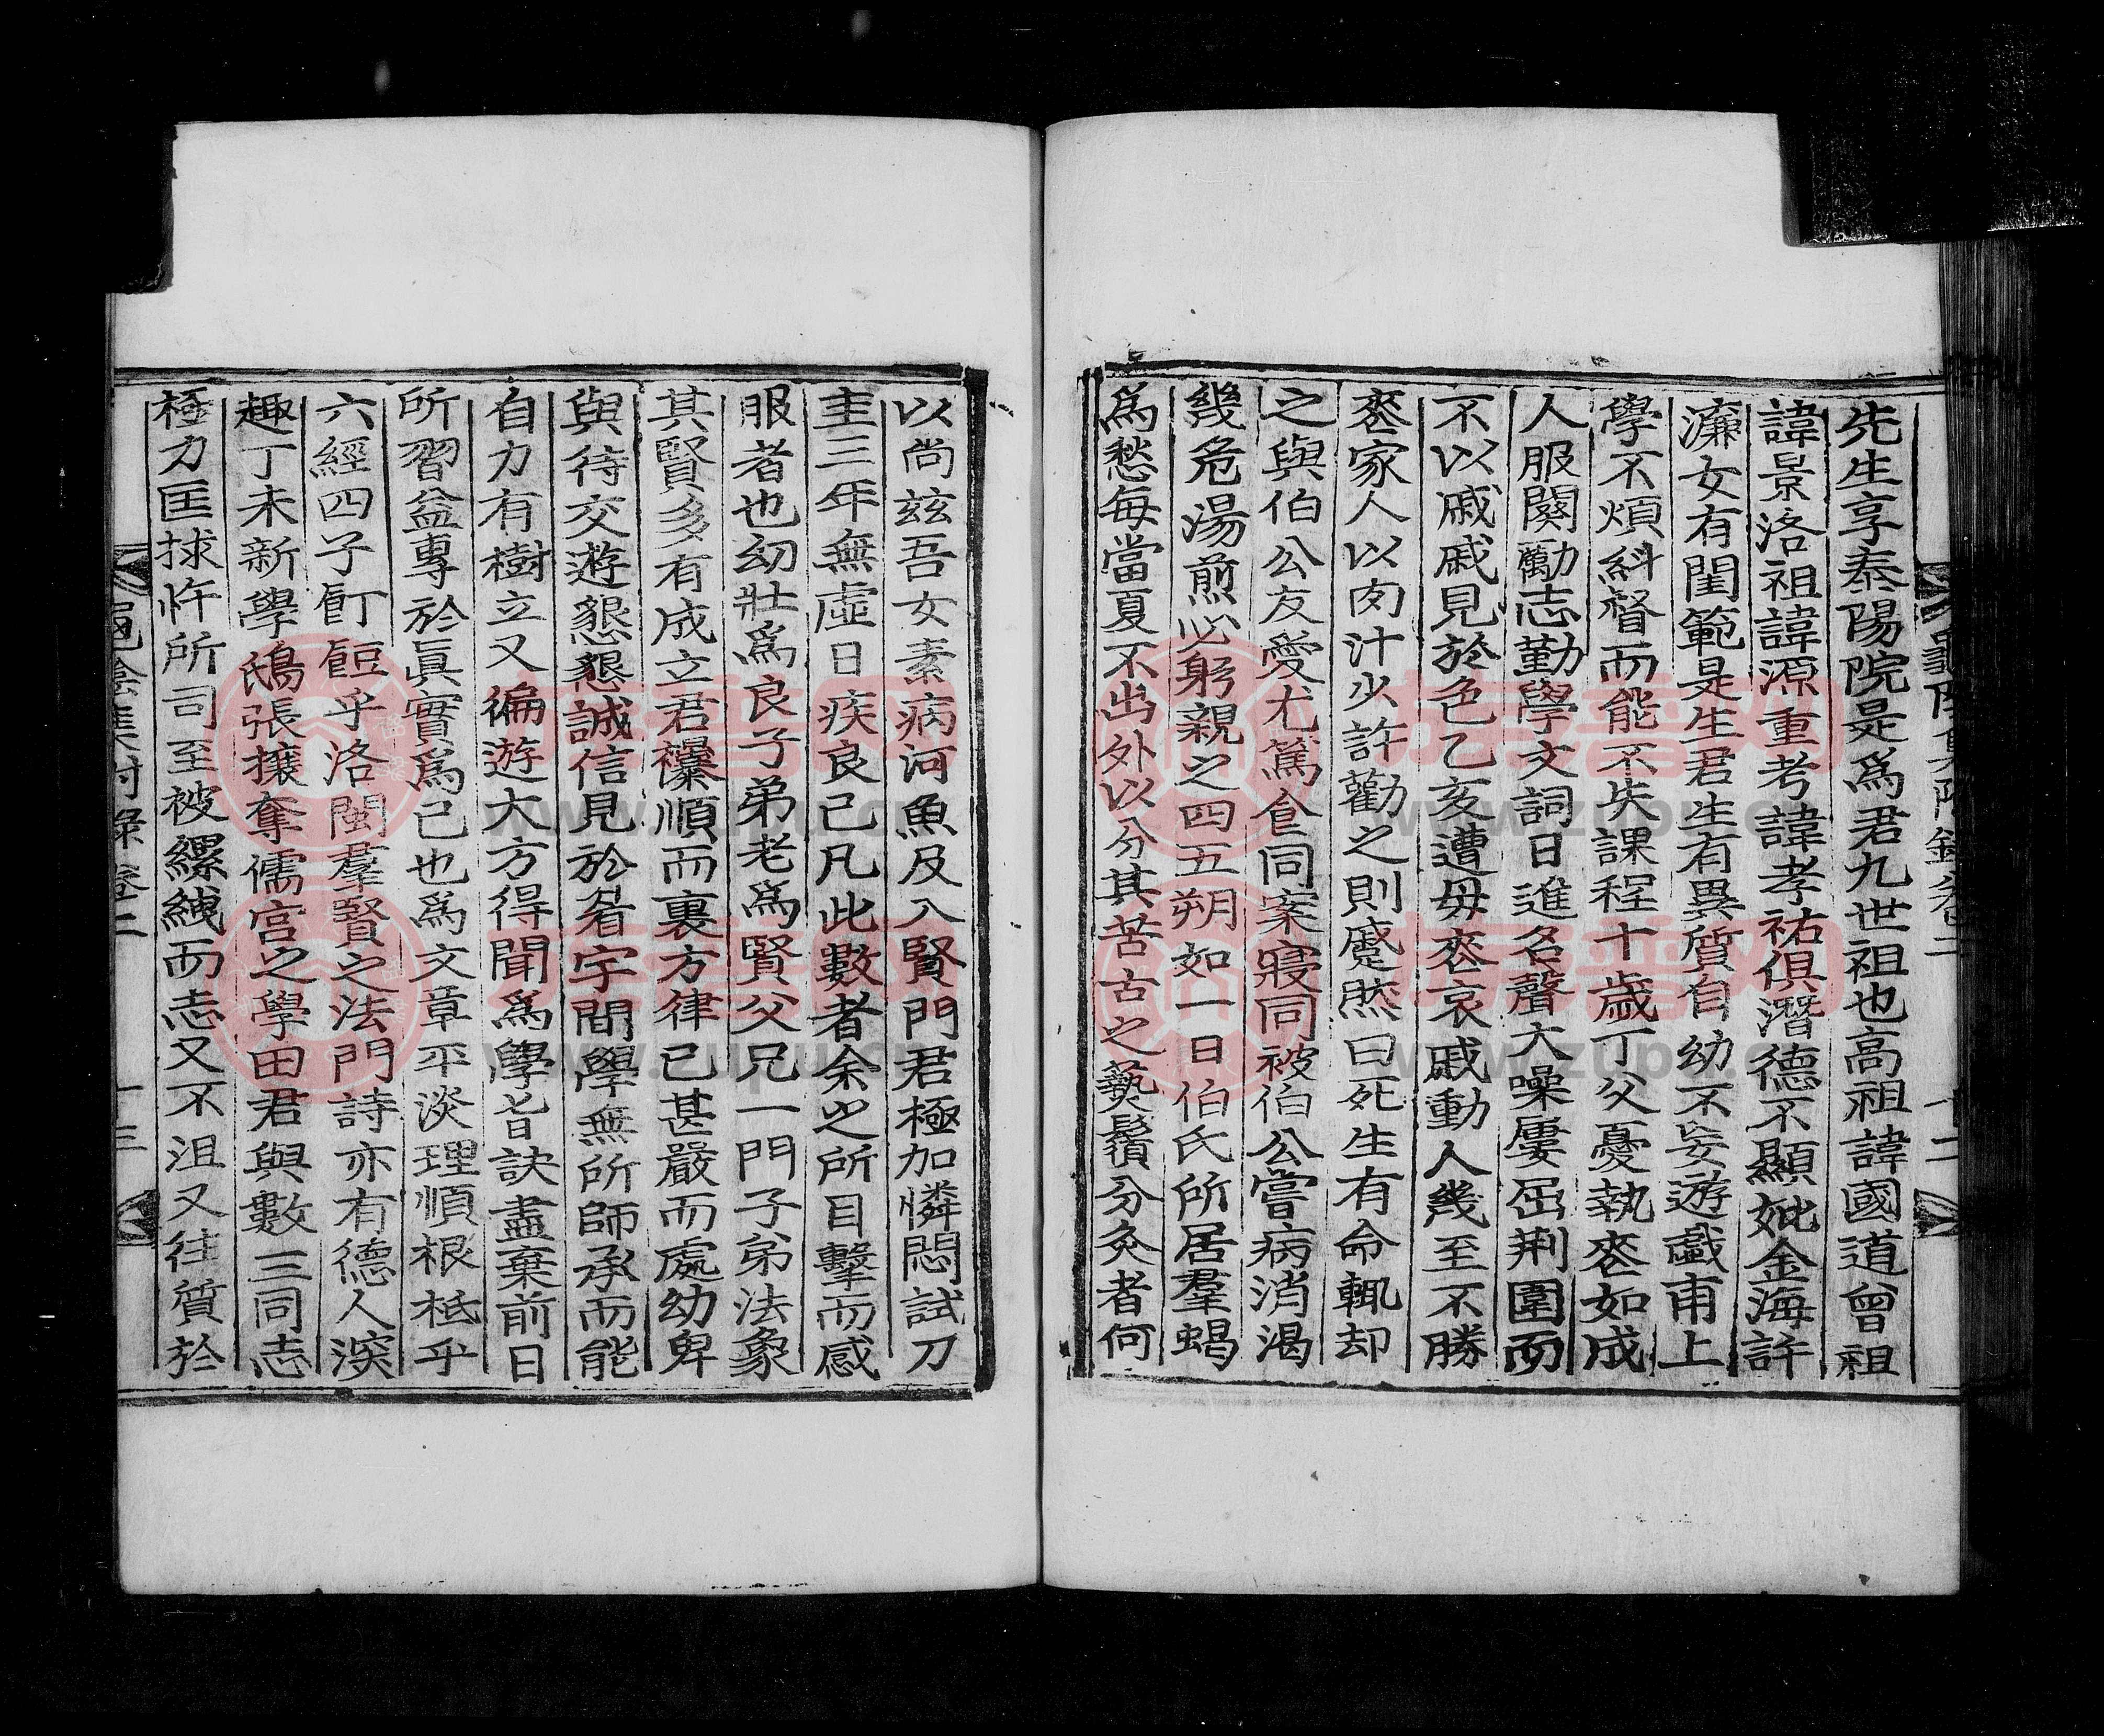 先生享泰陽院是爲君九世祖也高祖諱國道曾祖
諱景洛祖諱源重考諱孝祐俱潛德不顯妣金海許
濂女有閨範是生君生有異質自幼不妄遊戱甫上
學不煩糾督而能不失課程十歲丁父憂執喪如成
人服闋勵志勤學文詞日進名聲大噪屢屈荆圍而
不以戚戚見於色乙亥遭母喪哀戚動人幾至不勝
喪家人以肉汁少許勸之則蹙然曰死生有命輒却
之與伯公友愛尤篤食同案寢同被伯公嘗病消渴
幾危湯煎必躬親之四五朔如一日伯氏所居羣蝎
爲愁每當夏不出外以分其苦古之爇鬚分灸者何
以尚玆吾女素病河魚及入賢門君極加憐悶試刀
圭三年無虛日疾良已凡此數者余之所目擊而感
服者也幼壯爲良子弟老爲賢父兄一門子弟法象
其賢多有成立君襮順而裏方律己甚嚴而處幼卑
與待交遊懇懇誠信見於眉宇間學無所師承而能
自力有樹立又徧遊大方得聞爲學旨訣盡棄前日
所習益專於眞實爲己也爲文章平淡理順根柢乎
六經四子飣餖乎洛閩羣賢之法門詩亦有德人深
趣丁未新學鴟張攘奪儒宮之學田君與數三同志
極力匡救忤所司至被縲絏而志又不沮又往質於
龜陰集附錄卷二 十二
龜陰集附錄卷二 十三
www.zupu.cn
www.zupu.cn
www.zupu.cn
www.zupu.cn